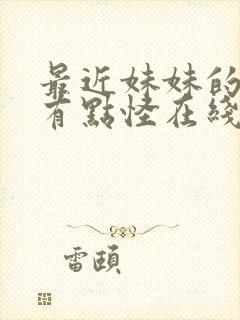 最近妹妹的
有點怪在綫
雷頤